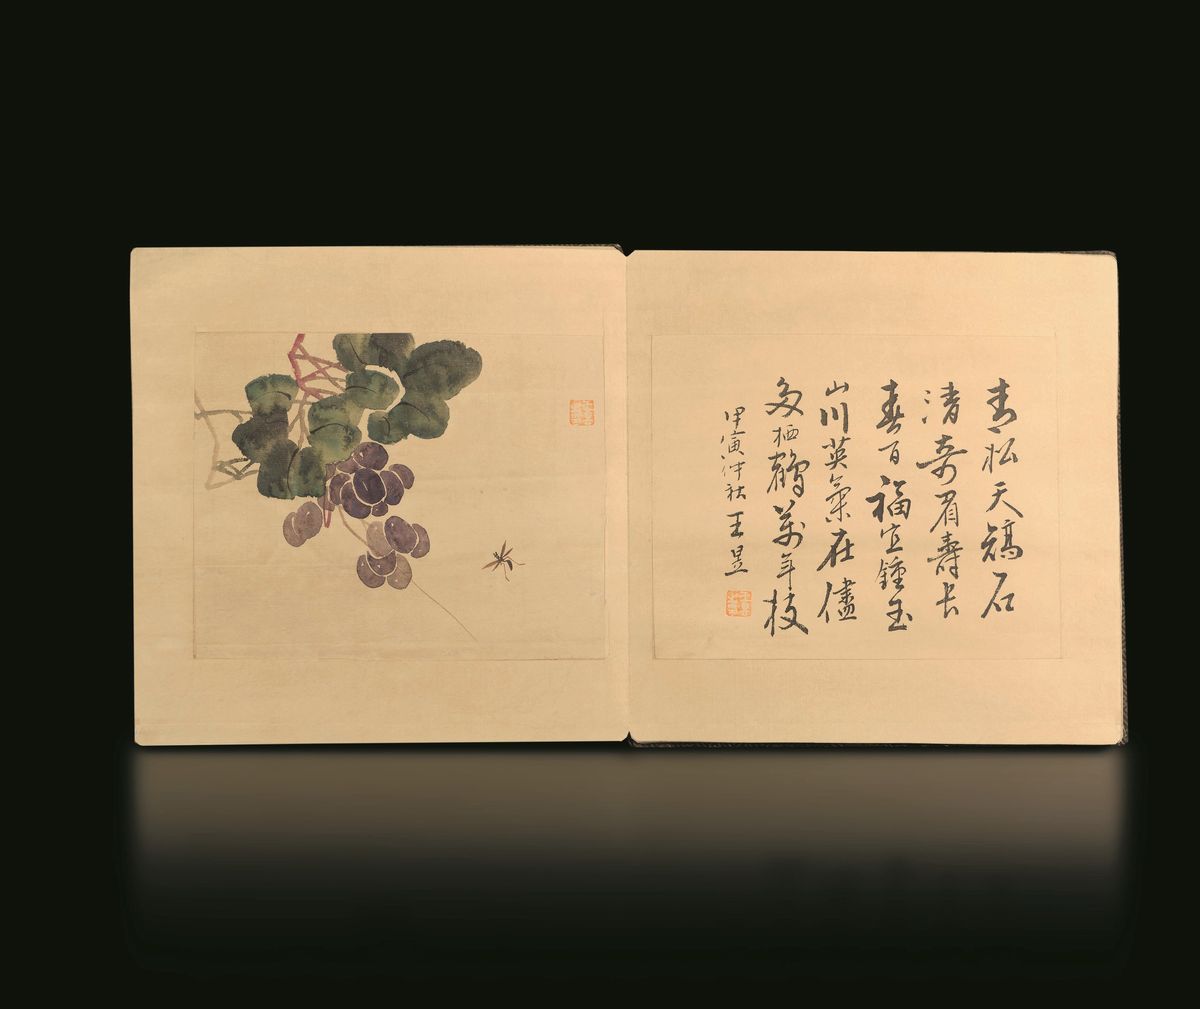 青松夭矯石
清奇眉壽長
春百福宜鍾玉
山川英氣在儘
多栖鶴萬年枝
甲寅仲秋 王昱